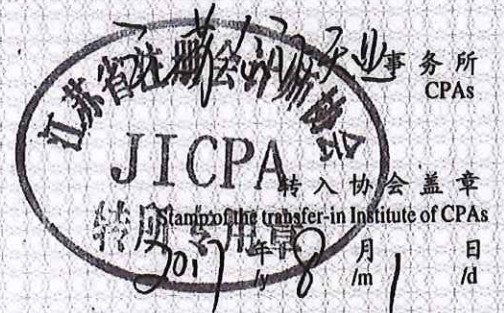 事务所
CPAs
江苏省注册会计师协会
JICPA
转入协会盖章
Stamp of the transfer-in Institute of CPAs
转所专用章
2017 年 8 月 1 日
/y /m /d